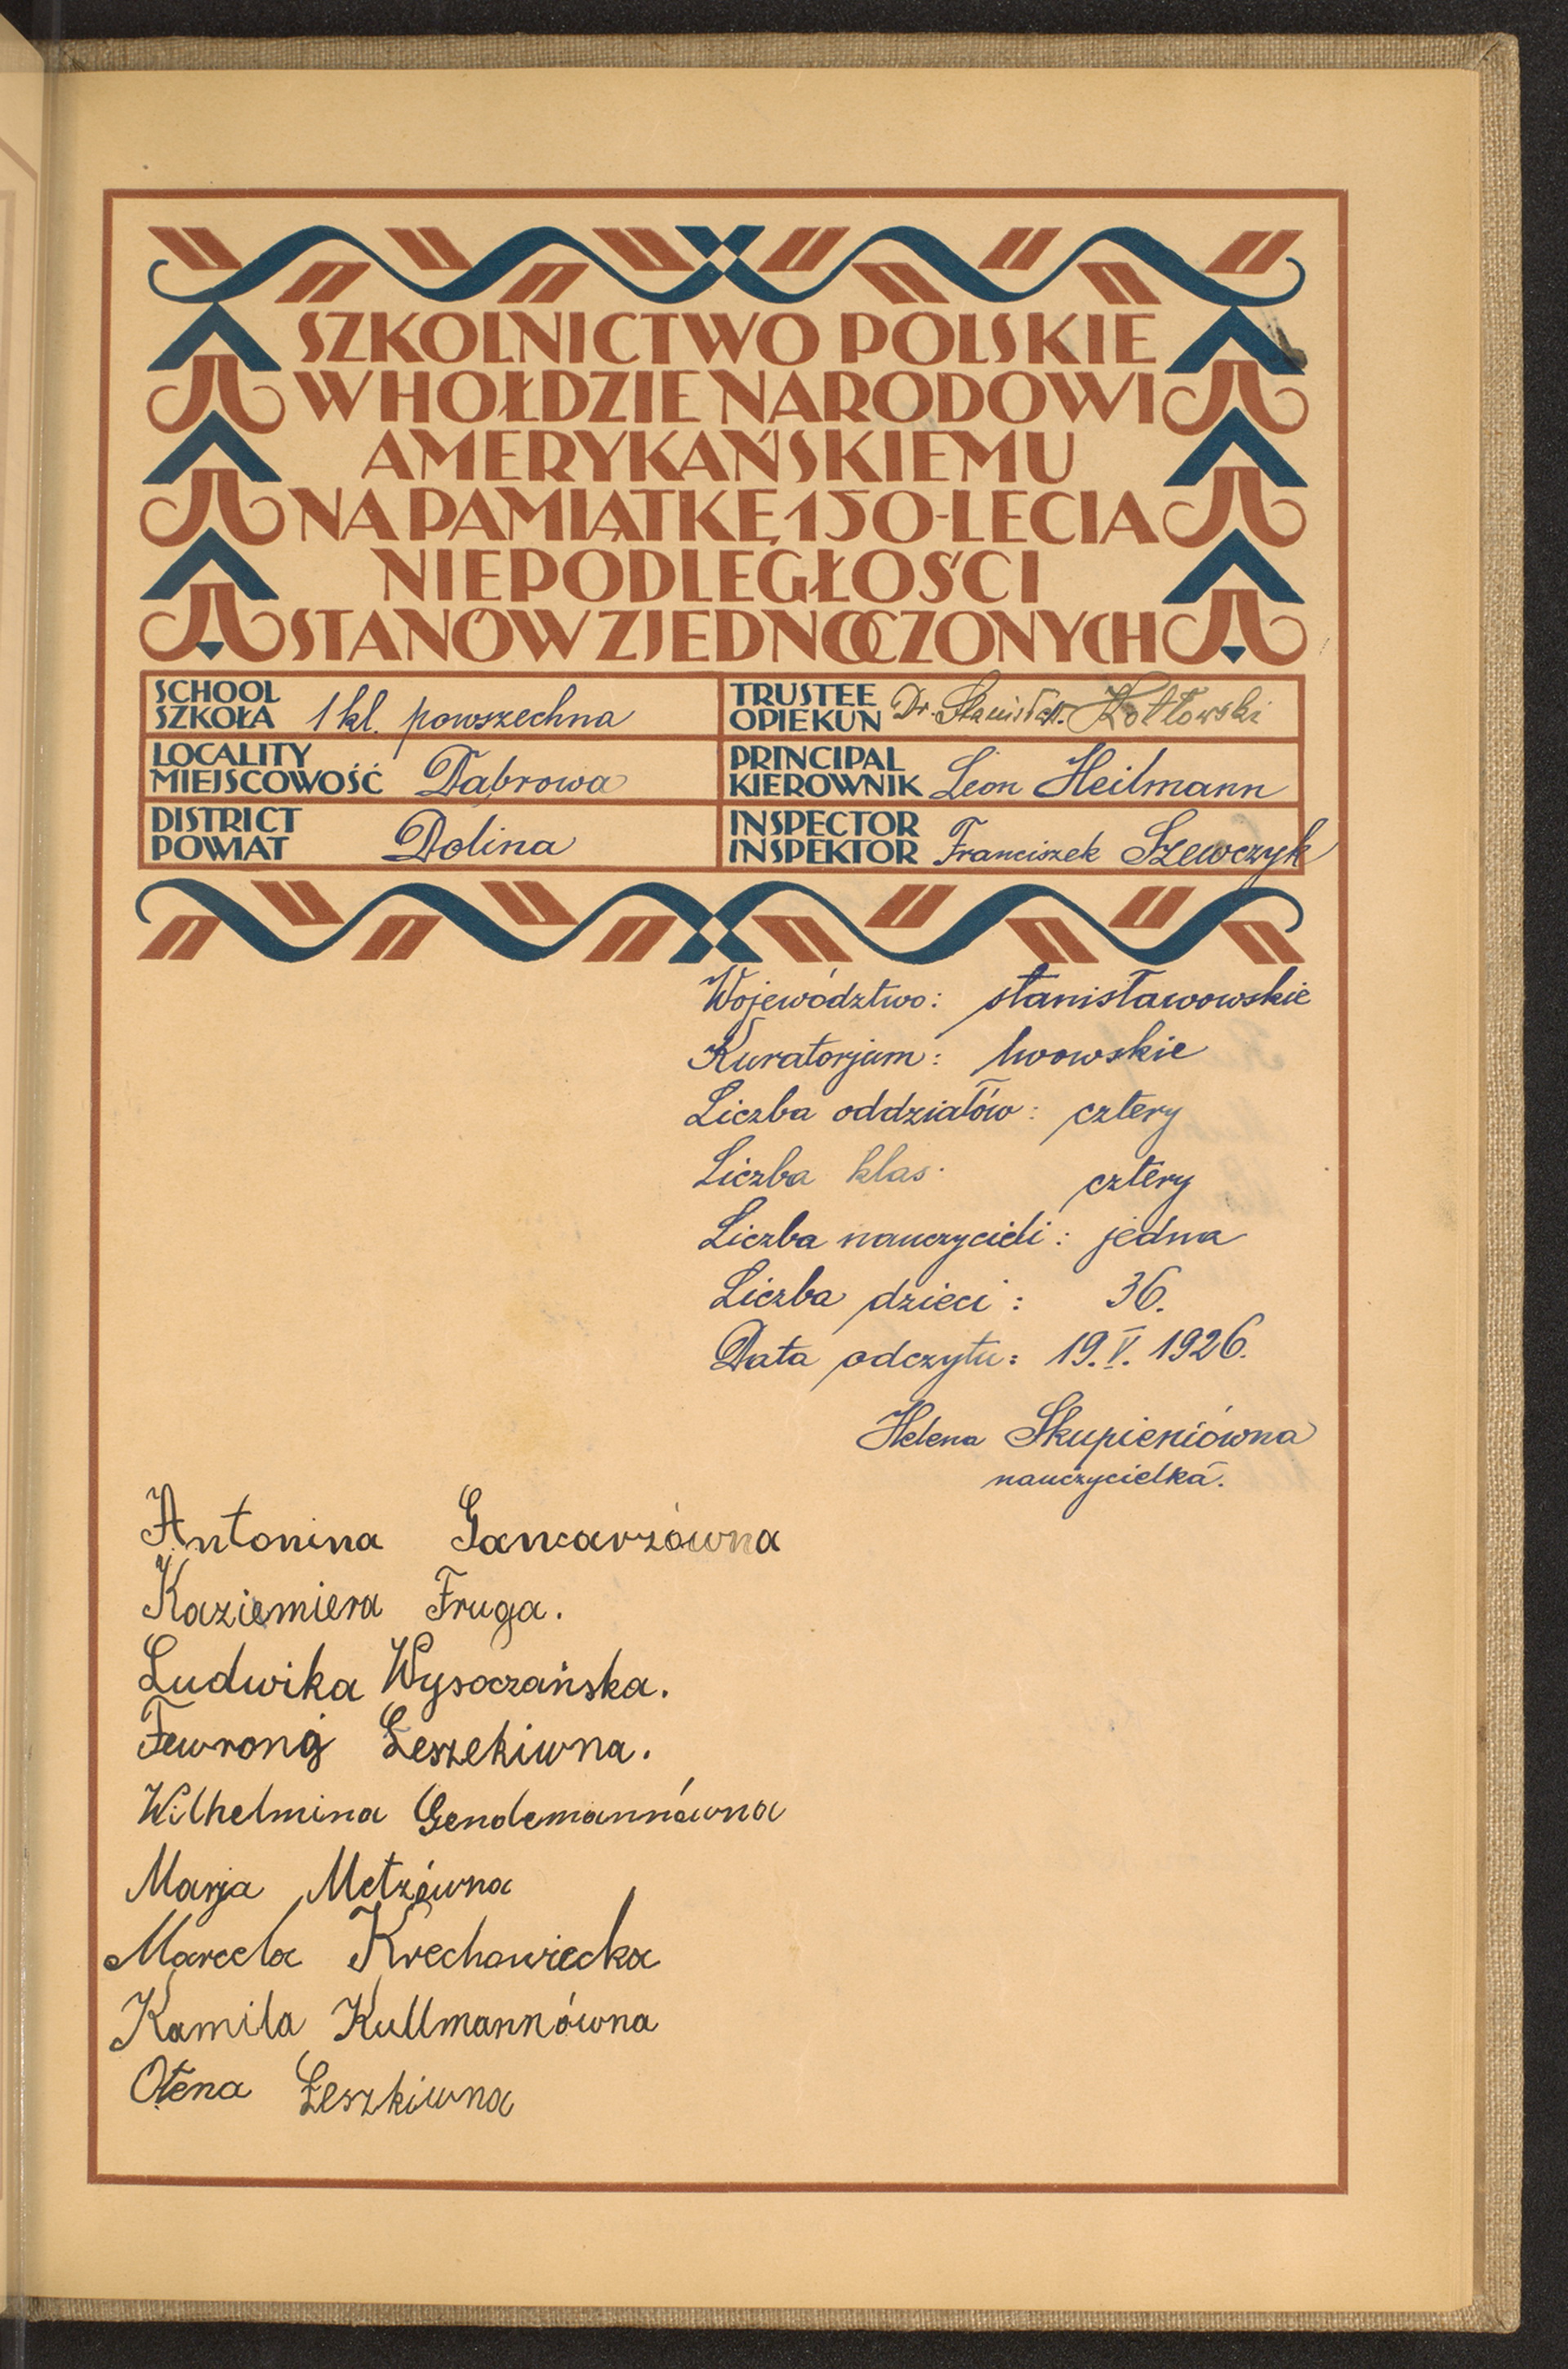 SZKOLNICTWO POLSKIE
W HOŁDZIE NARODOWI
AMERYKAŃSKIEMU
NA PAMIĄTKĘ 150-LECIA
NIEPODLEGŁOŚCI
STANÓW ZJEDNOCZONYCH
SCHOOL
SZKOŁA 1 kl. powszechna
TRUSTEE
OPIEKUN Dr. Stanisław Kotłowski
LOCALITY
MIEJSCOWOŚĆ Dąbrowa
PRINCIPAL
KIEROWNIK Leon Heilmann
DISTRICT
POWIAT Dolina
INSPECTOR
INSPEKTOR Franciszek Szewczyk
Województwo: stanisławowskie
Kuratorjum: lwowskie
Liczba oddziałów: cztery
Liczba klas: cztery
Liczba nauczycieli: jedna
Liczba dzieci: 36.
Data odczytu: 19. V. 1926.
Helena Skupieniówna
nauczycielka.
Antonina Gancarzówna
Kaziemiera Fruga.
Ludwika Wysoczańska.
Łeszekiwna.
Wilhelmina Gendemannówna
Marja Metzówna
Marcela Krechowiecka
Kamila Kullmannówna
Ołena Łeszkiwna